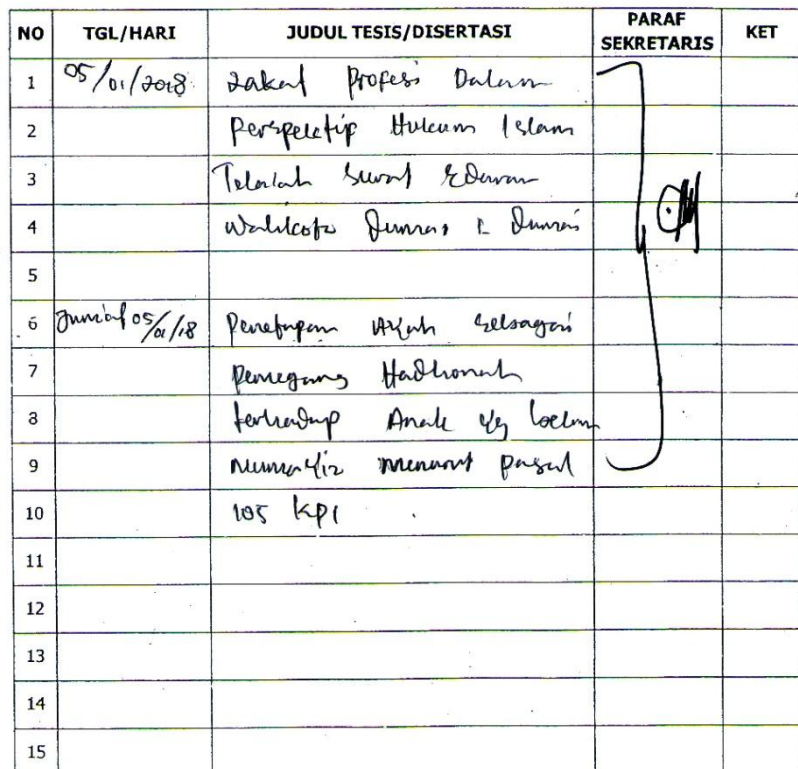 NO TGL/HARI JUDUL TESIS/DISERTASI PARAF SEKRETARIS KET
1 05/01/2018 Zakat Profesi Dalam
2 Perspektip Hukum Islam
3 Telaah Surat Edaran
4 Walikota Dumai Dumai
5
6 Jum'at 05/01/18 Penetapan Ayah Sebagai
7 Pemegang Hadhonah
8 terhadap Anak yg belum
9 mumayyiz menurut pasal
10 105 KHI
11
12
13
14
15